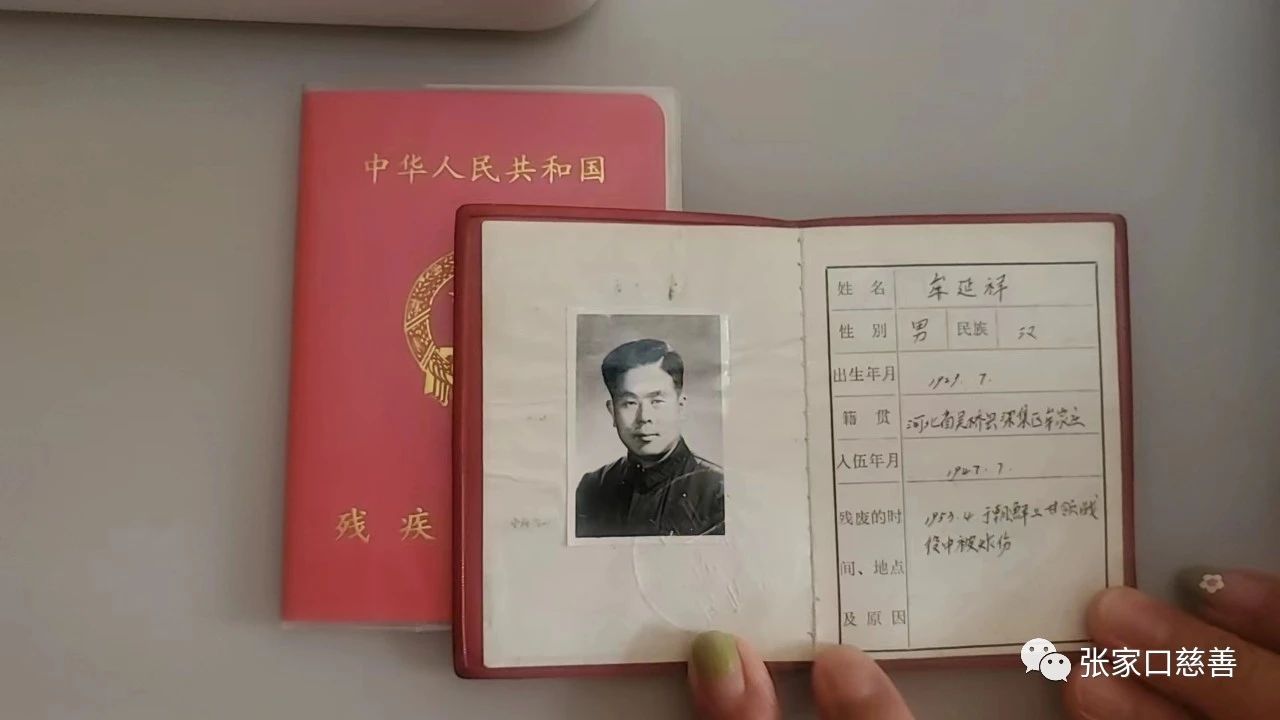 中华人民共和国
残疾
姓名 牟延祥
性别 男 民族 汉
出生年月 1929.7.
籍贯 河北省吴桥县梁集区牟家庄
入伍年月 1947.7.
残废的时间、地点及原因
1953.4于朝鲜上甘岭战
役中被炸伤
张家口慈善